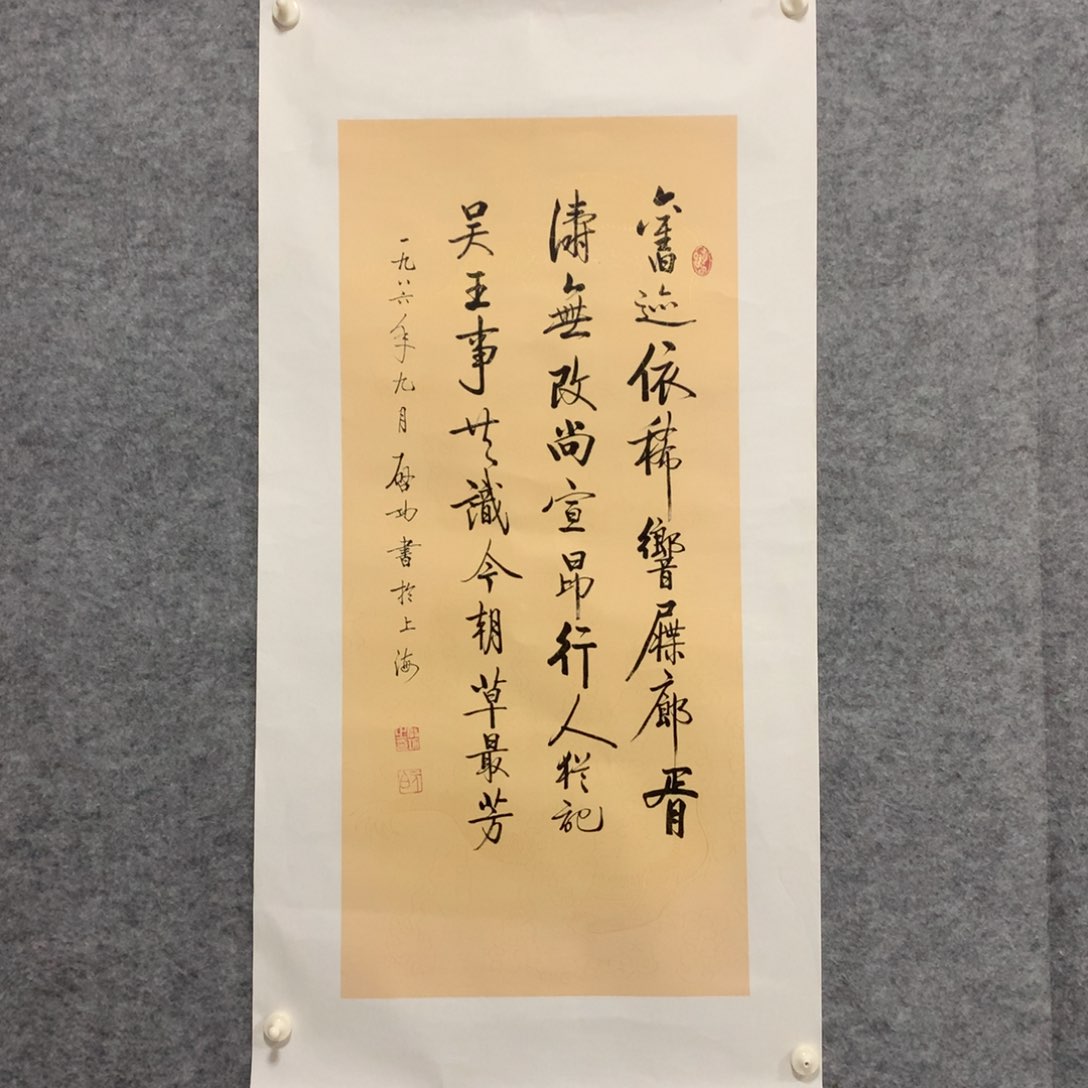 舊迹依稀響屧廊胥
濤無改尚宣昂行人猶記
吳王事共識今朝草最芳
一九八六年九月啟功書於上海